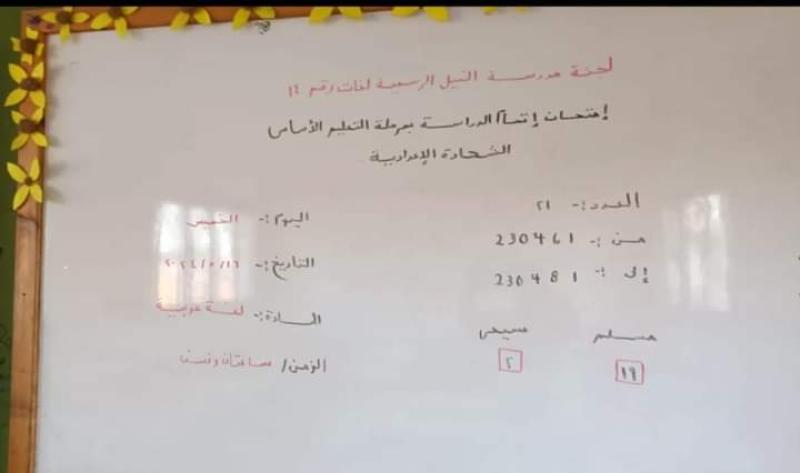 لجنة مدرسة النيل الرسمية لغات رقم ١٤
إمتحان إتمام الدراسة بمرحلة التعليم الأساسى
الشهادة الإعدادية
العدد :- ٢١
من :- 230461
إلى :- 230481
مسلم مسيحى
١٩ ٢
اليوم :- الخميس
التاريخ :- ٢٠٢٤/٥/١٦
المادة :- لغة عربية
الزمن / ساعتان ونصف